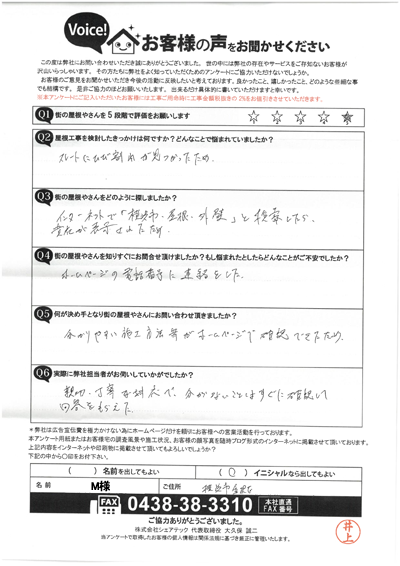 Voice!
お客様の声をお聞かせください
この度は弊社にお問い合わせいただき誠にありがとうございました。 世の中には弊社の存在やサービスをご存知ないお客様が
沢山いらっしゃいます。 その方たちに弊社をよく知っていただくためのご協力いただけないでしょうか。
お客様のご意見をお聞かせいただき今後の活動に反映したいと考えております。良かったこと、嬉しかったこと、どのような些細な事
でも結構です。 是非ご協力のほどお願いいたします。 出来るだけ具体的に書いていただけますと幸いです。
※本アンケートにご記入いただいたお客様には工事ご用命時に工事金額税抜きの 2%をお値引きさせていただきます。
Q1 街の屋根やさんを 5 段階で評価をお願いします ☆ ☆ ☆ ☆ ★
Q2 屋根工事を検討したきっかけは何ですか？どんなことで悩まれていましたか？
スレートにひび割れが見つかったため.
Q3 街の屋根やさんをどのように探しましたか？
インターネットで「 ・屋根・外壁」と検索したら.
貴社が表示されたため.
Q4 街の屋根やさんを知りすぐにお問合せ頂けましたか？もし悩まれたとしたらどんなことがご不安でしたか？
ホームページの電話番号に連絡をした.
Q5 何が決め手となり街の屋根やさんにお問い合わせ頂きましたか？
分かりやすい施工方法等がホームページで確認できたため.
Q6 実際に弊社担当者がお伺いしていかがでしたか？
親切、丁寧な 、分からないことはすぐに確認して
回答をもらえた.
＊弊社は広告宣伝費を極力かけない為にホームページだけを頼りにお客様への営業活動を行っております。
本アンケート用紙またはお客様宅の調査風景や施工状況、お客様の顔写真を随時ブログ形式のインターネットに掲載させて頂いております。
上記内容をインターネットや印刷物に掲載させて頂いてもよろしいでしょうか？
下記の中から〇印をお付下さい。
（ ）名前を出してもよい （ 〇 ）イニシャルなら出してもよい
名 前 M様 ご住所
FAX 0438-38-3310 本社直通 FAX 番号
ご協力ありがとうございました。
株式会社シェアテック 代表取締役 大久保 誠二
当アンケートで取得したお客様の個人情報は関係法規に基づき厳正に管理いたします。
井上